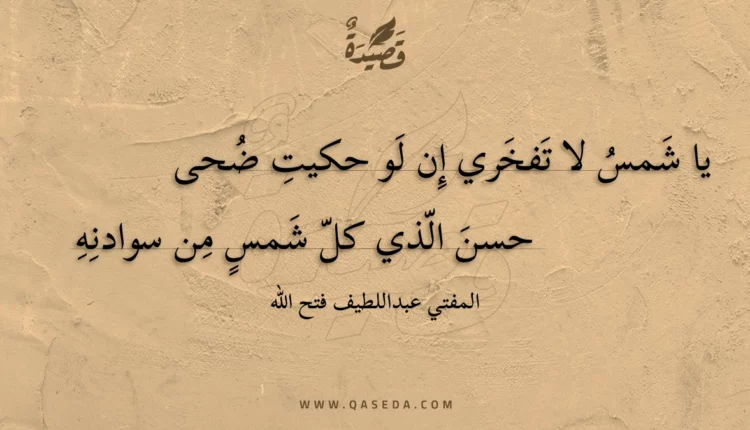 قَصِيدَةٌ
يا شَمسُ لا تَفخَري إِن لَو حكيتِ ضُحى
حسنَ الّذي كلّ شَمسٍ مِن سوادنِهِ
المفتي عبداللطيف فتح الله
WWW.QASEDA.COM